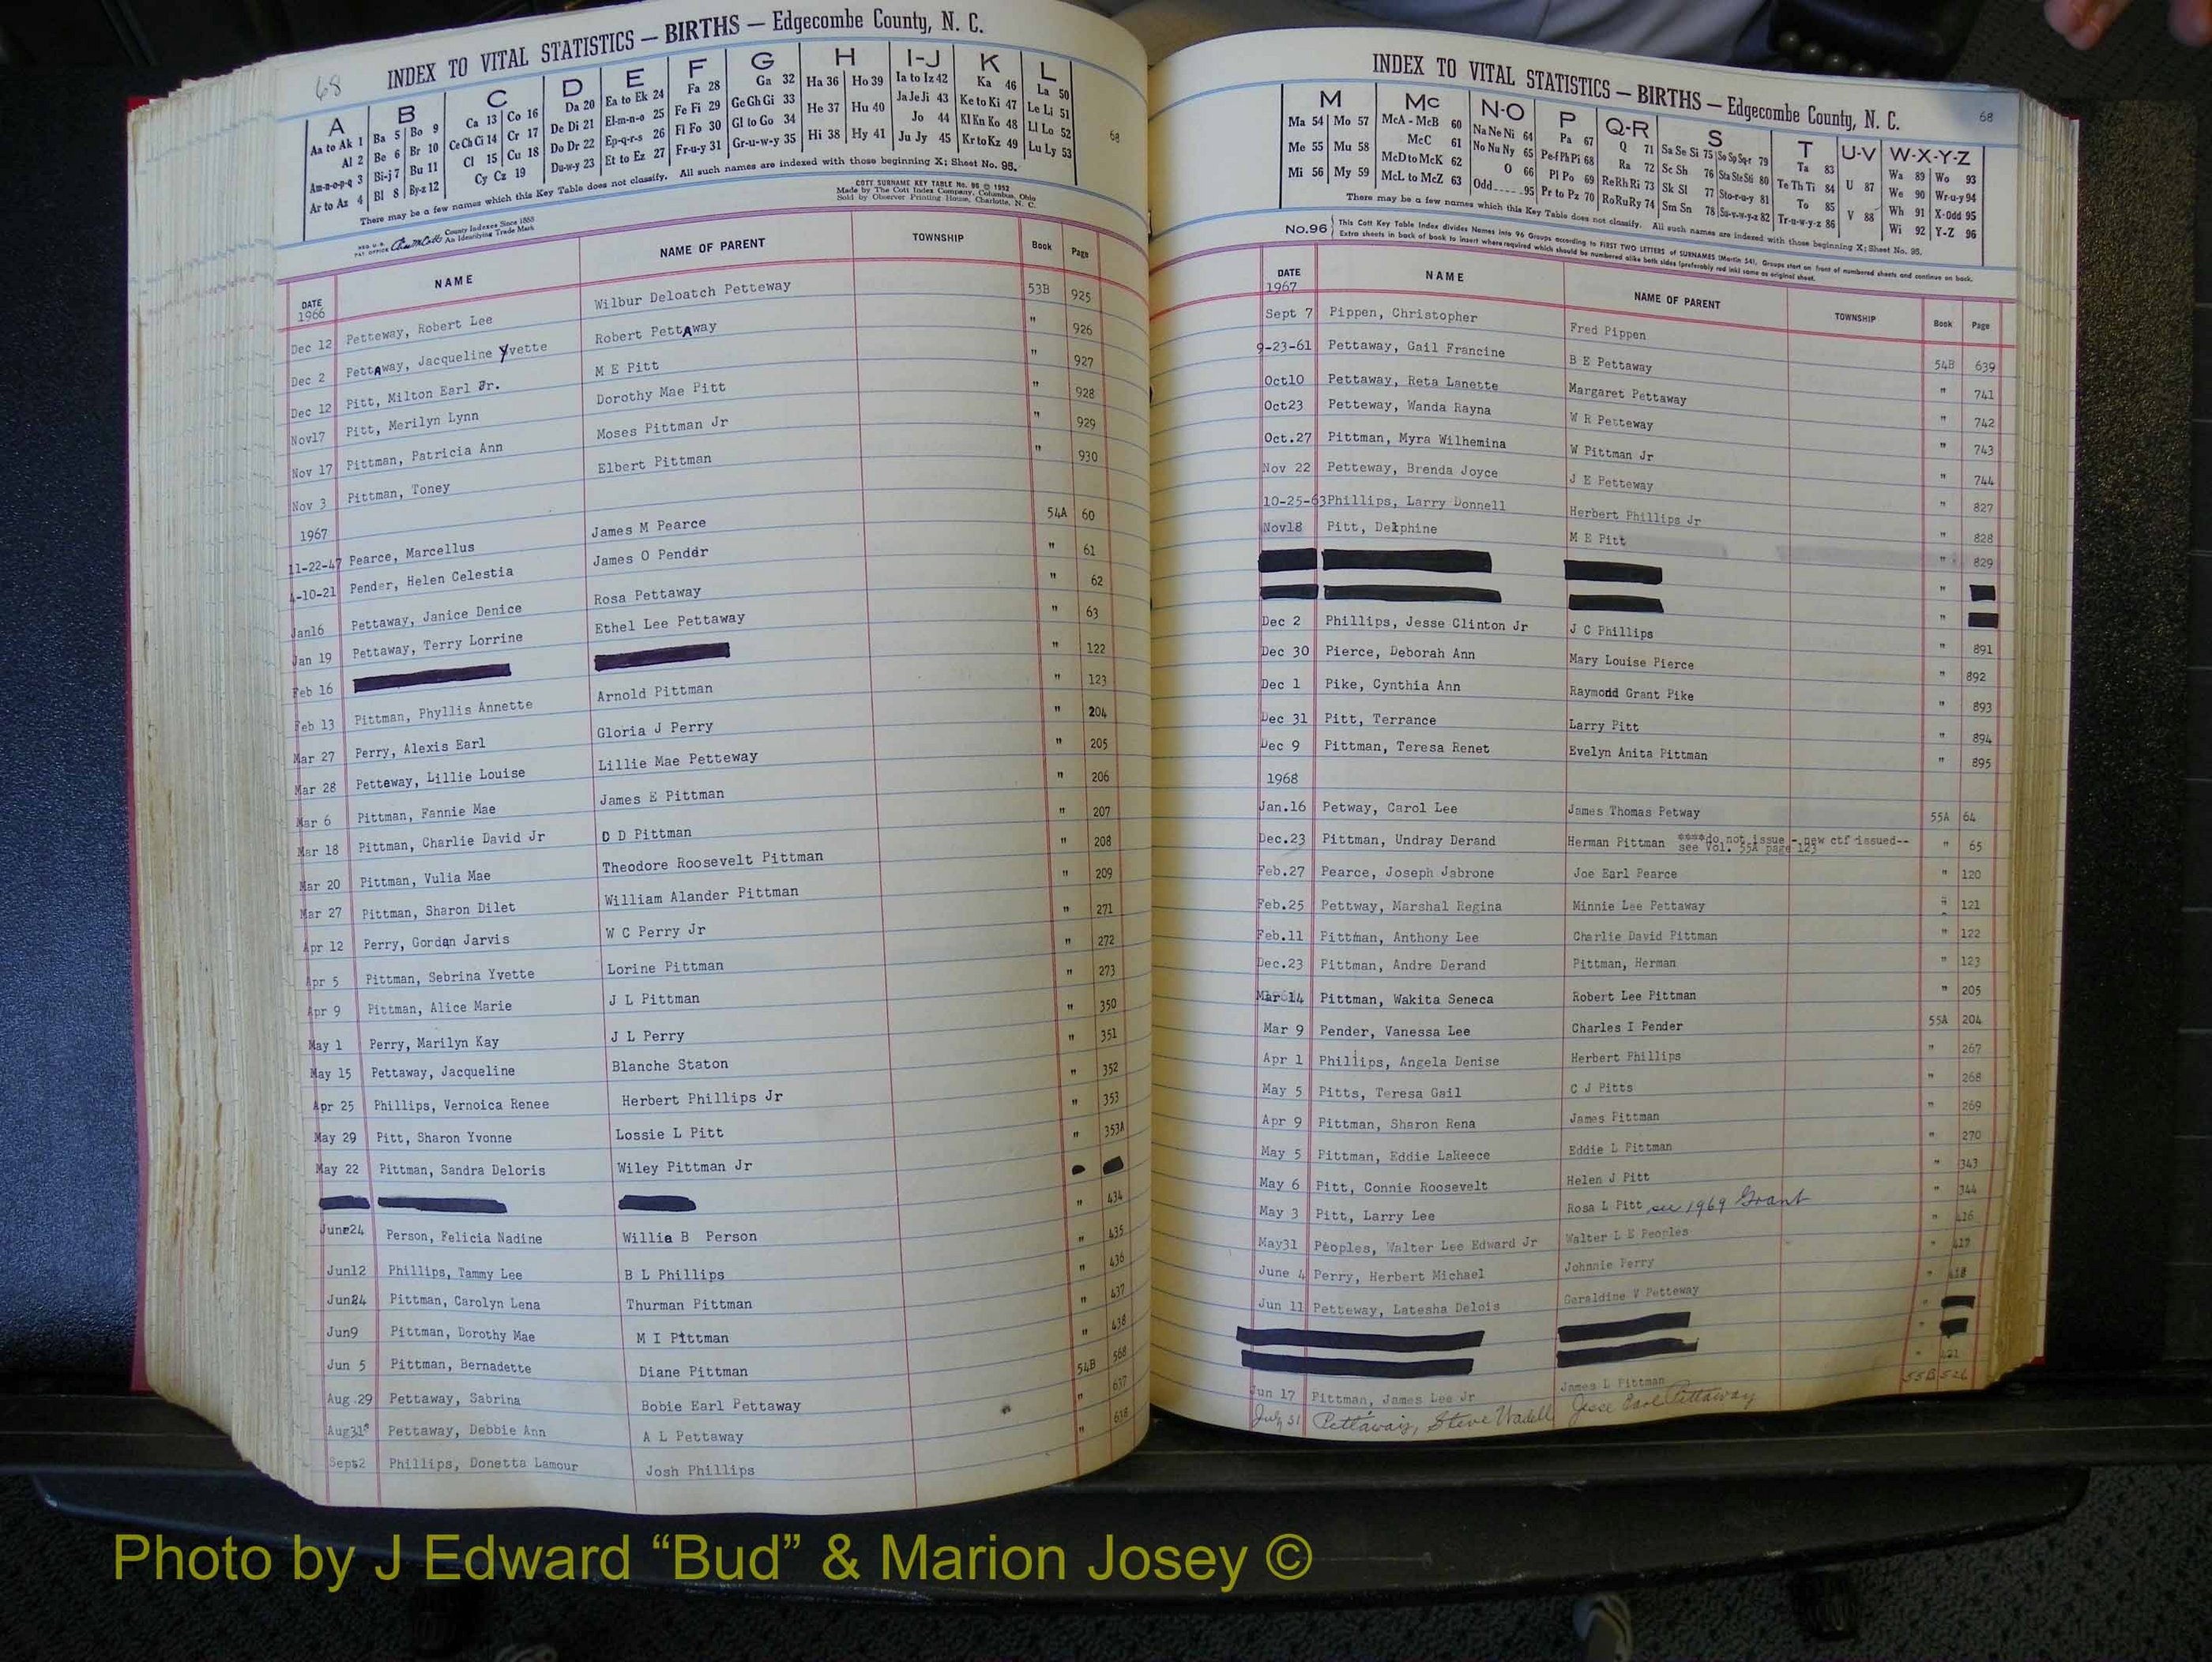 68
INDEX TO VITAL STATISTICS — BIRTHS — Edgecombe County, N. C.
A B C D E F G H I-J K L
Aa to Ak 1 Ba 5 Bo 9 Ca 13 Co 16 Da 20 Ea to Ek 24 Fa 28 Ga 32 Ha 36 Ho 39 Ia to Iz 42 Ka 46 La 50
Al 2 Be 6 Br 10 Ce Ch Ci 14 Cr 17 De Di 21 El-m-n-o 25 Fe Fi 29 Ge Gh Gi 33 He 37 Hu 40 Ja Je Ji 43 Ke to Ki 47 Le Li 51
Am-n-o-p-q 3 Bi-j 7 Bu 11 Cl 15 Cu 18 Do Dr 22 Ep-q-r-s 26 Fl Fo 30 Gl to Go 34 Hi 38 Hy 41 Jo 44 Kl Kn Ko 48 Ll Lo 52
Ar to Az 4 Bl 8 By-z 12 Cy Cz 19 Du-w-y 23 Et to Ez 27 Fr-u-y 31 Gr-u-w-y 35 Ju Jy 45 Kr to Kz 49 Lu Ly 53
68
There may be a few names which this Key Table does not classify. All such names are indexed with those beginning X; Sheet No. 95.
REG. U. S. PAT. OFFICE County Indexes Since 1888 An Identifying Trade Mark
COTT SURNAME KEY TABLE No. 96 © 1952
Made by The Cott Index Company, Columbus, Ohio
Sold by Observer Printing House, Charlotte, N. C.
DATE NAME NAME OF PARENT TOWNSHIP Book Page
1966
Dec 12 Petteway, Robert Lee Wilbur Deloatch Petteway 53B 925
Dec 2 PettAway, Jacqueline Yvette Robert PettAway " 926
Dec 12 Pitt, Milton Earl Jr. M E Pitt " 927
Nov17 Pitt, Merilyn Lynn Dorothy Mae Pitt " 928
Nov 17 Pittman, Patricia Ann Moses Pittman Jr " 929
Nov 3 Pittman, Toney Elbert Pittman " 930
1967
11-22-47 Pearce, Marcellus James M Pearce 54A 60
4-10-21 Pender, Helen Celestia James O Pender " 61
Jan16 Pettaway, Janice Denice Rosa Pettaway " 62
Jan 19 Pettaway, Terry Lorrine Ethel Lee Pettaway " 63
Feb 16 " 122
Feb 13 Pittman, Phyllis Annette Arnold Pittman " 123
Mar 27 Perry, Alexis Earl Gloria J Perry " 204
Mar 28 Petteway, Lillie Louise Lillie Mae Petteway " 205
Mar 6 Pittman, Fannie Mae James E Pittman " 206
Mar 18 Pittman, Charlie David Jr C D Pittman " 207
Mar 20 Pittman, Vulia Mae Theodore Roosevelt Pittman " 208
Mar 27 Pittman, Sharon Dilet William Alander Pittman " 209
Apr 12 Perry, Gordan Jarvis W C Perry Jr " 271
Apr 5 Pittman, Sebrina Yvette Lorine Pittman " 272
Apr 9 Pittman, Alice Marie J L Pittman " 273
May 1 Perry, Marilyn Kay J L Perry " 350
May 15 Pettaway, Jacqueline Blanche Staton " 351
Apr 25 Phillips, Vernoica Renee Herbert Phillips Jr " 352
May 29 Pitt, Sharon Yvonne Lossie L Pitt " 353
May 22 Pittman, Sandra Deloris Wiley Pittman Jr " 353A
June24 Person, Felicia Nadine Willie B Person " 434
Jun12 Phillips, Tammy Lee B L Phillips " 435
Jun24 Pittman, Carolyn Lena Thurman Pittman " 436
Jun9 Pittman, Dorothy Mae M I Pittman " 437
Jun 5 Pittman, Bernadette Diane Pittman " 438
Aug.29 Pettaway, Sabrina Bobie Earl Pettaway 54B 568
Aug31 Pettaway, Debbie Ann A L Pettaway " 637
Sept2 Phillips, Donetta Lamour Josh Phillips " 638
INDEX TO VITAL STATISTICS — BIRTHS — Edgecombe County, N. C.
68
M Mc N-O P Q-R S T U-V W-X-Y-Z
Ma 54 Mo 57 McA - McB 60 Na Ne Ni 64 Pa 67 Q 71 Sa Se Si 75 So Sp Sq-r 79 Ta 83 Wa 89 Wo 93
Me 55 Mu 58 McC 61 No Nu Ny 65 Pe-f Ph Pi 68 Ra 72 Sc Sh 76 Sta Ste Sti 80 Te Th Ti 84 U 87 We 90 Wr-u-y 94
Mi 56 My 59 McD to McK 62 O 66 Pl Po 69 Re Rh Ri 73 Sk Sl 77 Sto-r-u-y 81 To 85 V 88 Wh 91 X-Odd 95
McL to McZ 63 Odd 95 Pr to Pz 70 Ro Ru Ry 74 Sm Sn 78 Su-v-w-y-z 82 Tr-u-w-y-z 86 Wi 92 Y-Z 96
There may be a few names which this Key Table does not classify. All such names are indexed with those beginning X; Sheet No. 95.
No.96 This Cott Key Table Index divides Names into 96 Groups according to FIRST TWO LETTERS of SURNAMES (Martin 54). Groups start on front of numbered sheets and continue on back.
Extra sheets in back of book to insert where required which should be numbered alike both sides (preferably red ink) same as original sheet.
DATE NAME NAME OF PARENT TOWNSHIP Book Page
1967
Sept 7 Pippen, Christopher Fred Pippen 54B 639
9-23-61 Pettaway, Gail Francine B E Pettaway " 741
Oct10 Pettaway, Reta Lanette Margaret Pettaway " 742
Oct23 Petteway, Wanda Rayna W R Petteway " 743
Oct.27 Pittman, Myra Wilhemina W Pittman Jr " 744
Nov 22 Petteway, Brenda Joyce J E Petteway " 827
10-25-63 Phillips, Larry Donnell Herbert Phillips Jr " 828
Nov18 Pitt, Delphine M E Pitt " 829
"
"
Dec 2 Phillips, Jesse Clinton Jr J C Phillips " 891
Dec 30 Pierce, Deborah Ann Mary Louise Pierce " 892
Dec 1 Pike, Cynthia Ann Raymond Grant Pike " 893
Dec 31 Pitt, Terrance Larry Pitt " 894
Dec 9 Pittman, Teresa Renet Evelyn Anita Pittman " 895
1968
Jan.16 Petway, Carol Lee James Thomas Petway 55A 64
Dec.23 Pittman, Undray Derand Herman Pittman ****do not issue - new ctf issued-- " 65
see Vol. 55A page 123
Feb.27 Pearce, Joseph Jabrone Joe Earl Pearce " 120
Feb.25 Pettway, Marshal Regina Minnie Lee Pettaway " 121
Feb.11 Pittman, Anthony Lee Charlie David Pittman " 122
Dec.23 Pittman, Andre Derand Pittman, Herman " 123
Mar 14 Pittman, Wakita Seneca Robert Lee Pittman " 205
Mar 9 Pender, Vanessa Lee Charles I Pender 55A 204
Apr 1 Phillips, Angela Denise Herbert Phillips " 267
May 5 Pitts, Teresa Gail C J Pitts " 268
Apr 9 Pittman, Sharon Rena James Pittman " 269
May 5 Pittman, Eddie LaReece Eddie L Pittman " 270
May 6 Pitt, Connie Roosevelt Helen J Pitt " 343
May 3 Pitt, Larry Lee Rosa L Pitt see 1969 Grant " 344
May31 Peoples, Walter Lee Edward Jr Walter L E Peoples " 416
June 4 Perry, Herbert Michael Johnnie Perry " 417
Jun 11 Petteway, Latesha Delois Geraldine V Petteway " 418
"
"
Jun 17 Pittman, James Lee Jr James L Pittman " 421
July 31 Pettaway, Steve Wadell Jesse Earl Pettaway 55B 526
Photo by J Edward “Bud” & Marion Josey ©